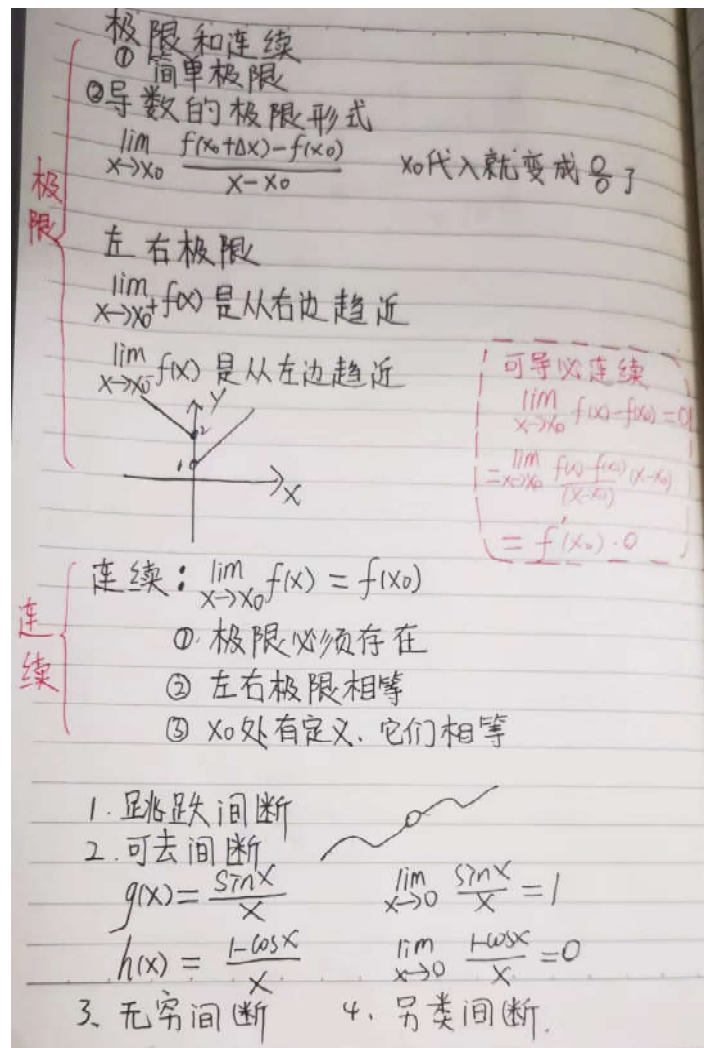 极限和连续
① 简单极限
②导数的极限形式
lim x→x₀ (f(x₀+Δx)-f(x₀))/(x-x₀) x₀代入就变成0/0了
极限
左右极限
lim x→x₀⁺ f(x) 是从右边趋近
lim x→x₀⁻ f(x) 是从左边趋近
y
2
1
x
可导必连续
lim x→x₀ f(x)-f(x₀)=0
=lim x→x₀ (f(x)-f(x₀))/(x-x₀) (x-x₀)
= f'(x₀)·0
连续
连续：lim x→x₀ f(x) = f(x₀)
①. 极限必须存在
② 左右极限相等
③ x₀处有定义、它们相等
1. 跳跌间断
2. 可去间断
g(x)= sinx/x lim x→0 sinx/x =1
h(x) = 1-cosx/x lim x→0 1-cosx/x =0
3、无穷间断 4、另类间断.